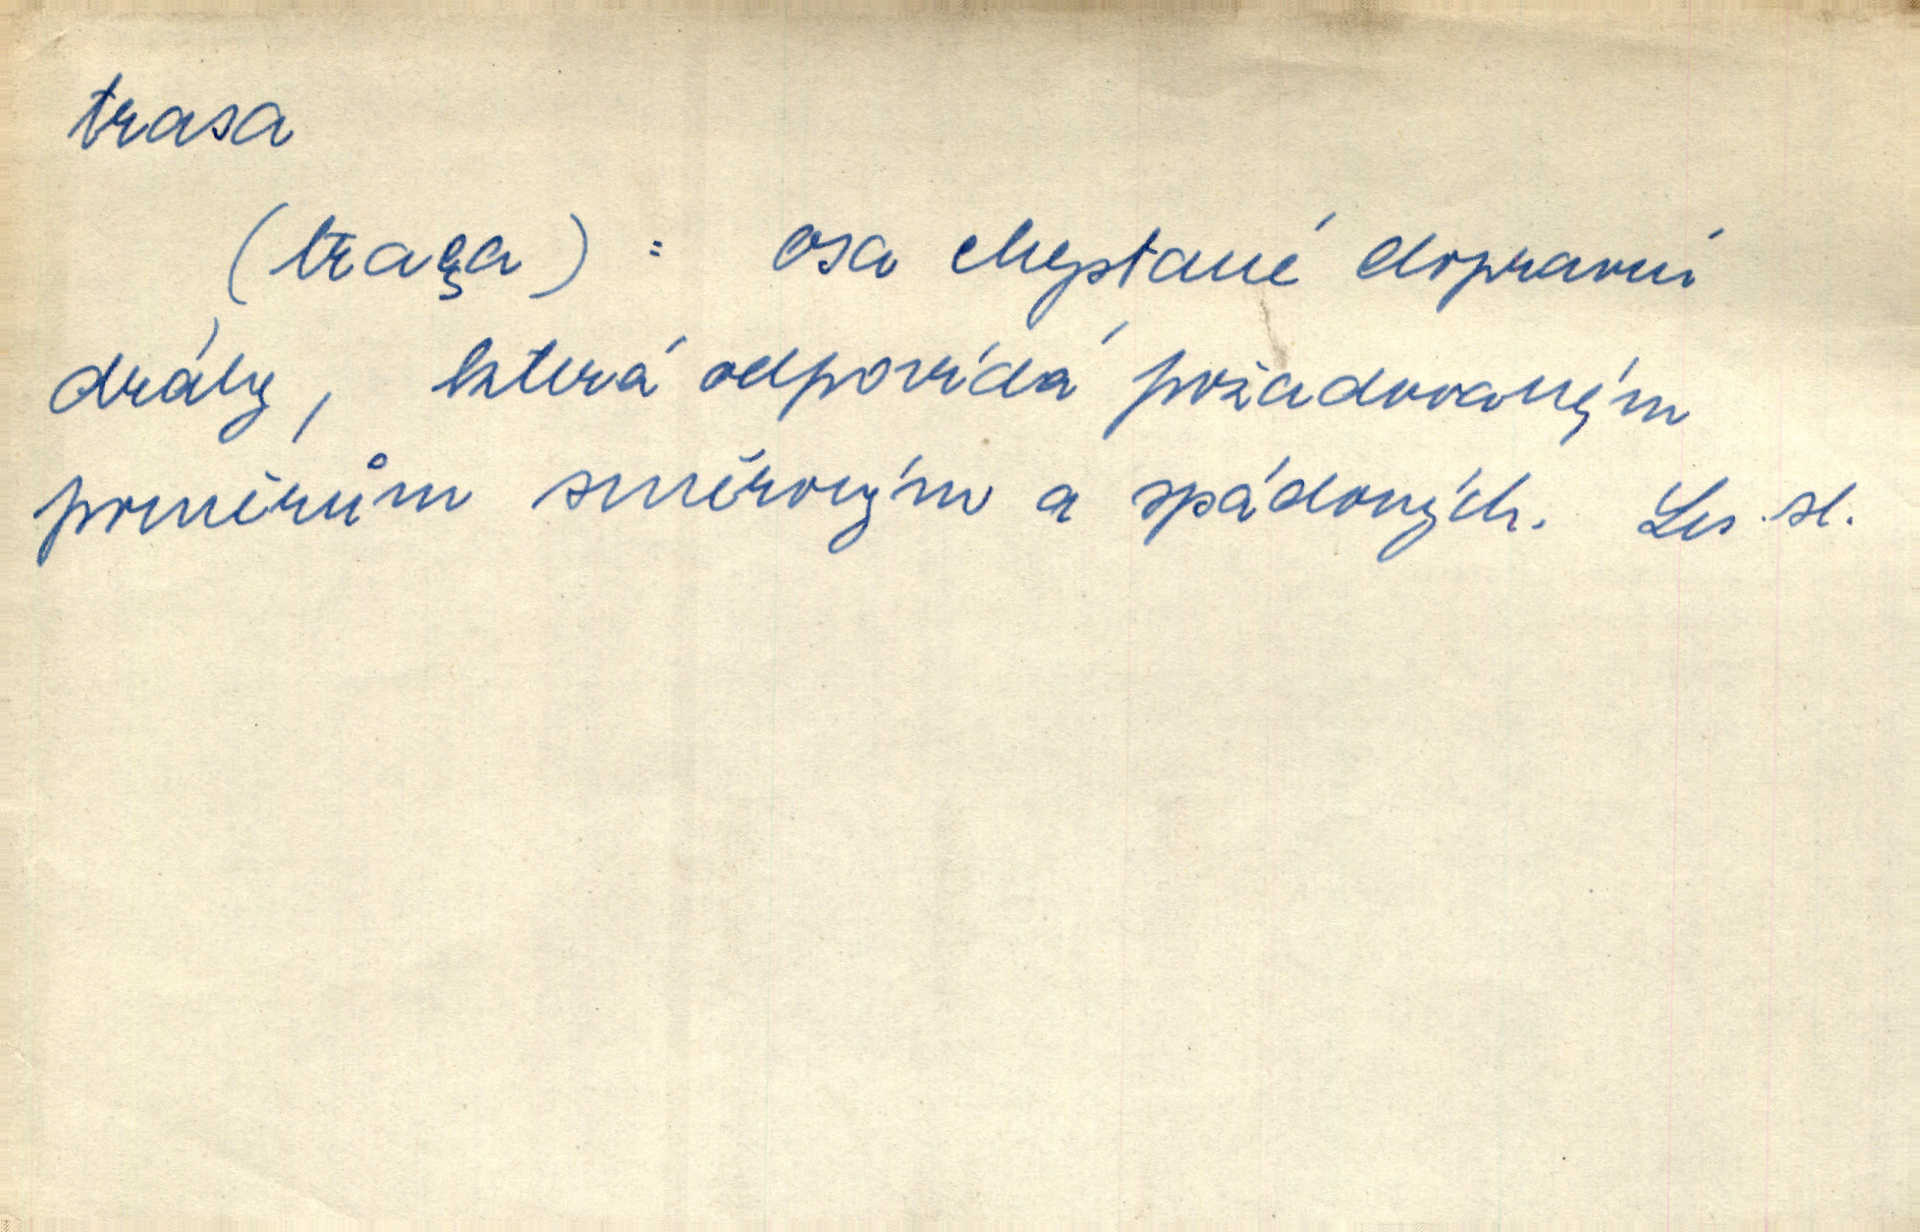 trasa
(traça) : osa chystané dopravní
dráhy, která odpovídá požadovaným
poměrům směrovým a spádových. Les. sl.